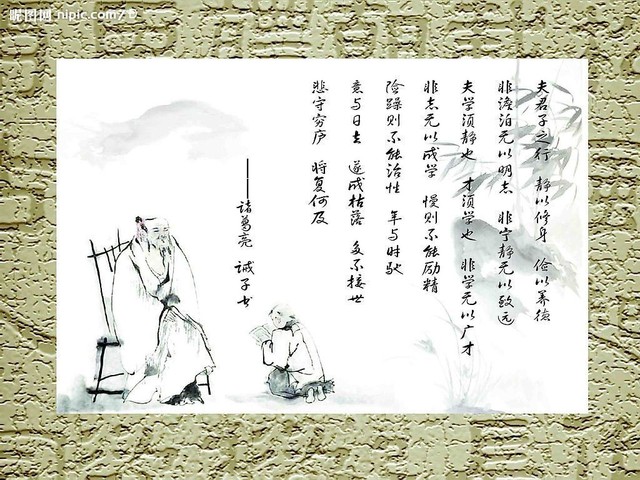 昵图网 nipic.com/
夫君子之行 静以修身 俭以养德
非澹泊无以明志 非宁静无以致远
夫学须静也 才须学也 非学无以广才
非志无以成学 慢则不能励精
险躁则不能治性 年与时驰
意与日去 遂成枯落 多不接世
悲守穷庐 将复何及
——诸葛亮 诫子书